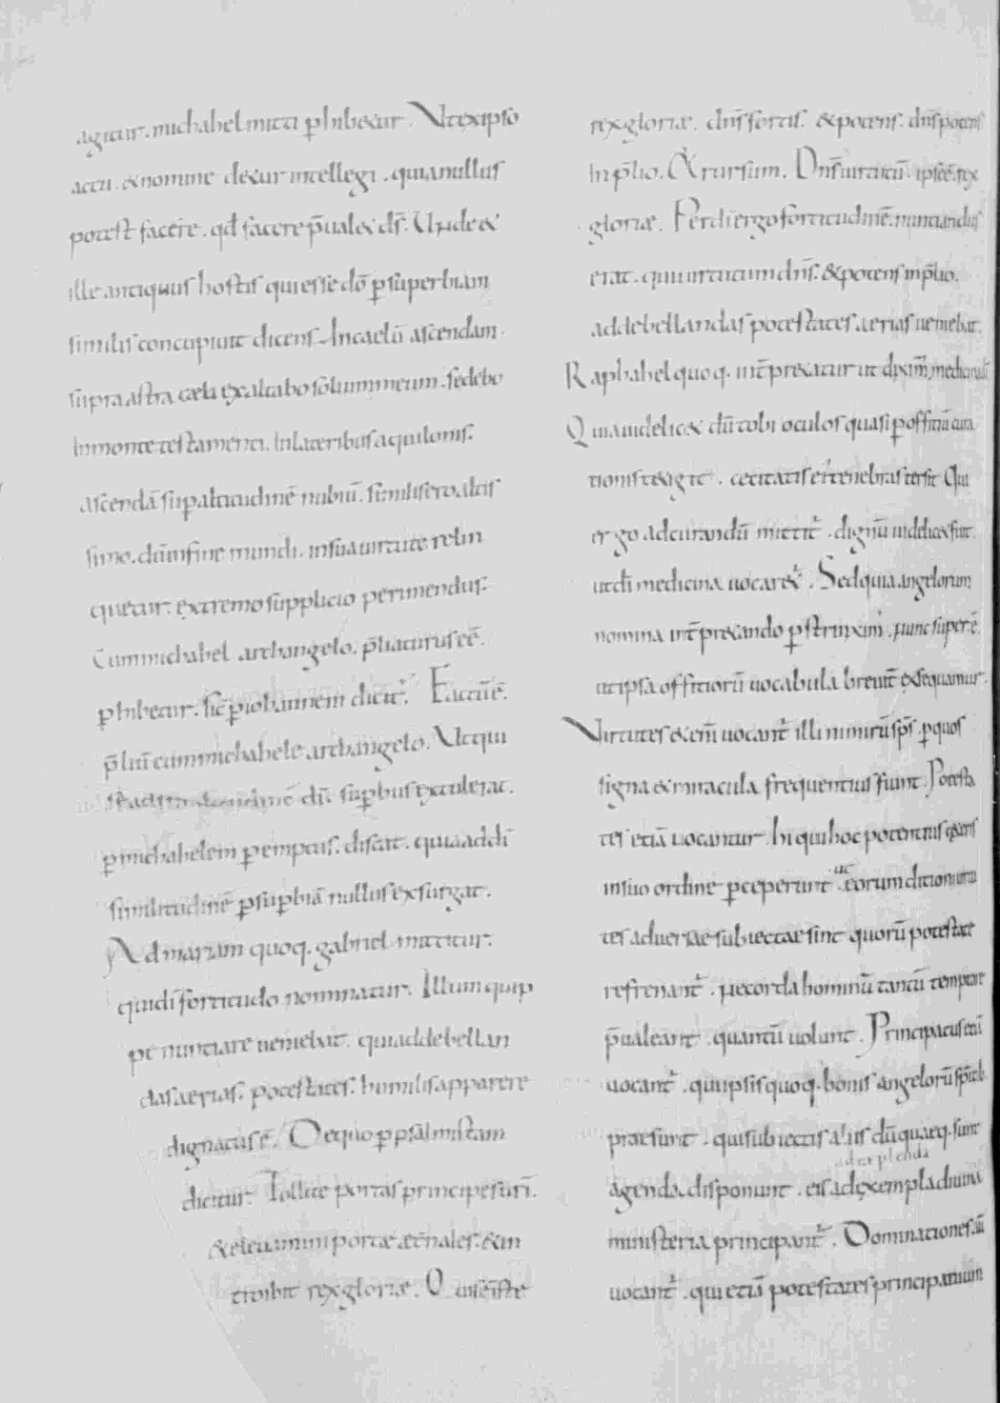 agitur. michahel mitti ꝑhibetur. Ut ex ipso
actu. & nomine detur intellegi. quia nullus
potest facere. qđ facere p̄ual& d̄s. Unde &
ille antiquus hostis qui esse dō ꝑ superbiam
similis concupiuit dicens. In caelū ascendam.
supra astra cæli exaltabo solium meum. sedebo
In monte testamenti. In lateribus aquilonis.
ascendā suꝑ altitudinē nubiū. similis ero altis
simo. dū in fine mundi. in sua uirtute relin
quetur. extremo supplicio perimendus.
Cum michahel archangelo. p̄liaturus eē.
ꝑhibetur. sic̄ ꝑ iohannem dicit᷑. Factū ē.
p̄liū cum michahele archangelo. Ut qui
se ad similitudinē dī. suꝑbus extulerat.
ꝑ michahelem ꝑemptus. discat. quia ad dī
similitudinē ꝑ suꝑbiā nullus exsurgat.
Ad mariam quoq. gabriel mittitur.
qui dī fortitudo nominatur. Illum quip
pe nuntiare ueniebat. qui ad debellan
das aerias. potestates. humilis apparere
dignatus ē. De quo ꝑ psalmistam
dicitur. Tollite portas principes uri̅.
& eleuamini portæ æt̄nales. & in
troibit rex gloriæ. Q̇ uis ē iste
rex gloriæ. dn̄s fortis. & potens. dn̄s potens
In p̄lio. & rursum. Dn̄s uirtutū. ipse ē. rex
gloriæ. Per dī ergo fortitudinē. nuntiandus
erat. qui uirtutum dn̄s. & potens in p̄lio.
ad debellandas potestates aerias ueniebat.
Raphahel quoq. int̄pr&atur ut dixim᷑ medicina dī
Quia uidelic& dū tobi oculos quasi ꝑ offitiū cura
tionis t&igit. cecitatis ei᷑ tenebras tersit Qui
ergo ad curandū mittit᷑. dignū uidelic& fuit.
ut dī medicina uocar&᷑. Sed quia angelorum
nomina int̄pr&ando ꝑstrinxim᷑. nunc super ē
ut ipsa offitiorū uocabula breuit̄ exsequamur.
Uirtutes &enī uocant᷑ illi nimirū sp̄s. ꝑ quos
signa & miracula frequentius fiunt. Potesta
tes etiā uocantur. hi qui hoc potentius c&eris
in suo ordine ꝑceperunt ut eorum dicioni uirtu
tes aduersae subiectae sint quorū potestate
refrenant᷑. ne corda hominū tantū temptare
p̄ualeant. quantū uolunt. Principatus etiā
uocant᷑. qui ipsis quoq. bonis angelorū sp̄itib
praesunt. qui subiectis aliis dū quaeq. sunt
adexplenda
agenda disponunt. eis ad exempla diuina
ministeria principant᷑. Dominationes. uō
uocant᷑. qui etiā potestates principatuum